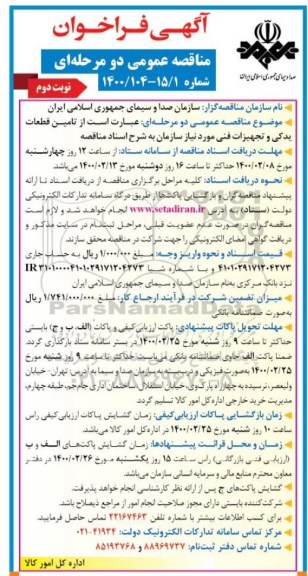 آگهی فراخوان
مناقصه عمومی دو مرحله‌ای
شماره ۱۴۰۰/۱۰۴-۱۵/۱
نوبت دوم
صدا و سیمای جمهوری اسلامی ایران
نام سازمان مناقصه‌گزار: سازمان صدا و سیمای جمهوری اسلامی ایران
موضوع مناقصه عمومی دو مرحله‌ای: عبارت است از تامین قطعات
یدکی و تجهیزات فنی مورد نیاز سازمان به شرح اسناد مناقصه
مهلت دریافت اسناد مناقصه از سامانه ستاد: از ساعت ۱۲ روز چهارشنبه
مورخ ۱۴۰۰/۰۲/۰۸ حداکثر تا ساعت ۱۶ روز دوشنبه مورخ ۱۴۰۰/۰۲/۱۳ می‌باشد.
نحوه دریافت اسناد: کلیه مراحل برگزاری مناقصه از دریافت اسناد تا ارائه
پیشنهاد مناقصه‌گران و بازگشایی پاکتها از طریق درگاه سامانه تدارکات الکترونیکی
دولت (ستاد) به آدرس www.setadiran.ir انجام خواهد شد و لازم است
مناقصه‌گران در صورت عدم عضویت قبلی، مراحل ثبت‌نام در سایت مذکور و
دریافت گواهی امضای الکترونیکی را جهت شرکت در مناقصه محقق سازند.
قیمت اسناد و نحوه واریز وجه: مبلغ ۱/۰۰۰/۰۰۰ ریال به حساب جاری
نزد بانک مرکزی به‌نام سازمان صدا و سیمای جمهوری اسلامی ایران
میزان تضمین شرکت در فرآیند ارجاع کار: مبلغ ۱/۷۴۱/۰۰۰/۰۰۰ ریال
به‌صورت ضمانتنامه بانکی
مهلت تحویل پاکات پیشنهادی: پاکت ارزیابی کیفی و پاکات (الف، ب و ج) بایستی
حداکثر تا ساعت ۹ روز شنبه مورخ ۱۴۰۰/۰۲/۲۵ در بستر سامانه ستاد بارگذاری گردد.
ضمنا پاکت الف حاوی ضمانتنامه بانکی می‌بایست حداکثر تا ساعت ۹ روز شنبه مورخ
۱۴۰۰/۰۲/۲۵ به‌صورت فیزیکی و دربسته به سازمان صدا و سیما به آدرس: تهران- خیابان
ولیعصر، نرسیده به چهارراه پارک‌وی، خیابان استقلال، ساختمان اداری جام‌جم، طبقه چهارم،
مدیریت خرید خارجی اداره کل امور کالا تسلیم گردد.
زمان بازگشایی پاکات ارزیابی کیفی: زمان گشایش پاکات ارزیابی کیفی راس
ساعت ۱۰ روز شنبه مورخ ۱۴۰۰/۰۲/۲۵ در اداره کل امور کالا می‌باشد.
زمان و محل قرائت پیشنهادها: زمان گشایش پاکت‌های الف و ب
(ارزیابی فنی بازرگانی) راس ساعت ۱۵ روز یکشنبه مورخ ۱۴۰۰/۰۲/۲۶ در دفتر
معاون محترم منابع مالی و سرمایه انسانی سازمان می‌باشد.
گشایش پاکت‌های ج پس از ارائه نظر کارشناسی انجام خواهد پذیرفت.
شرکت‌کننده بایستی دارای مجوز صلاحیت انجام امور از مراجع ذیصلاح باشد.
برای کسب اطلاعات بیشتر با شماره تلفن ۲۲۱۶۷۴۶۳ تماس حاصل فرمایید.
مرکز تماس سامانه تدارکات الکترونیکی دولت: ۴۱۹۳۴-۰۲۱
شماره تماس دفتر ثبت‌نام: ۸۸۹۶۹۷۳۷ و ۸۵۱۹۳۷۶۸
اداره کل امور کالا